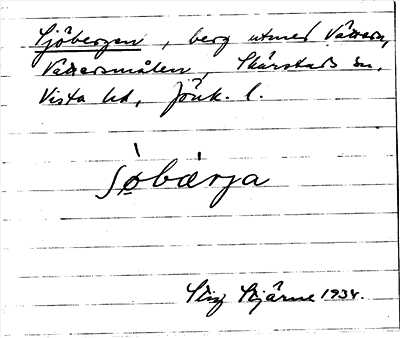 Sjöbergen, berg utmed Vättern,
Vattersmålen, Skärstads sn,
Vista hd, Jönk. l.
sø̀bærja
Stig Bjärne 1934.